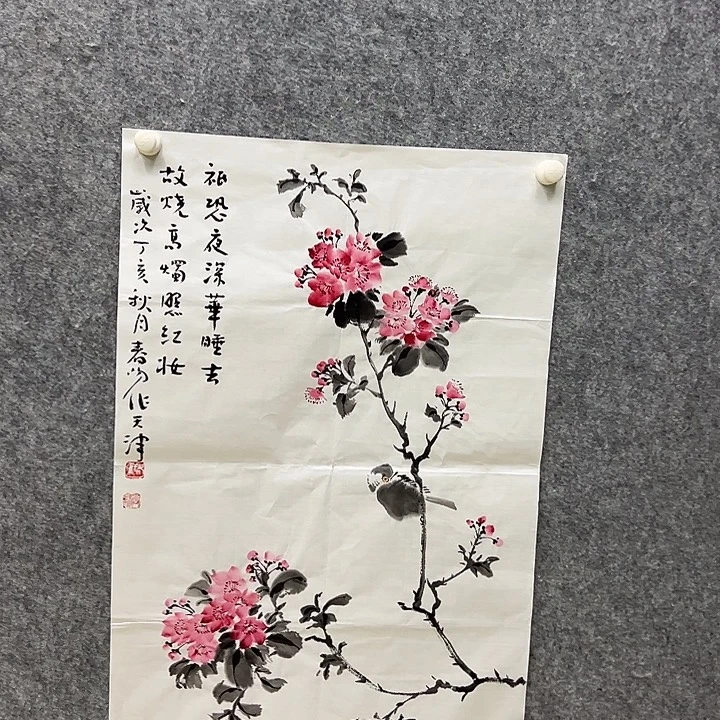 祇恐夜深華睡去
故燒高燭照紅妝
歲次丁亥秋月春沕作天津